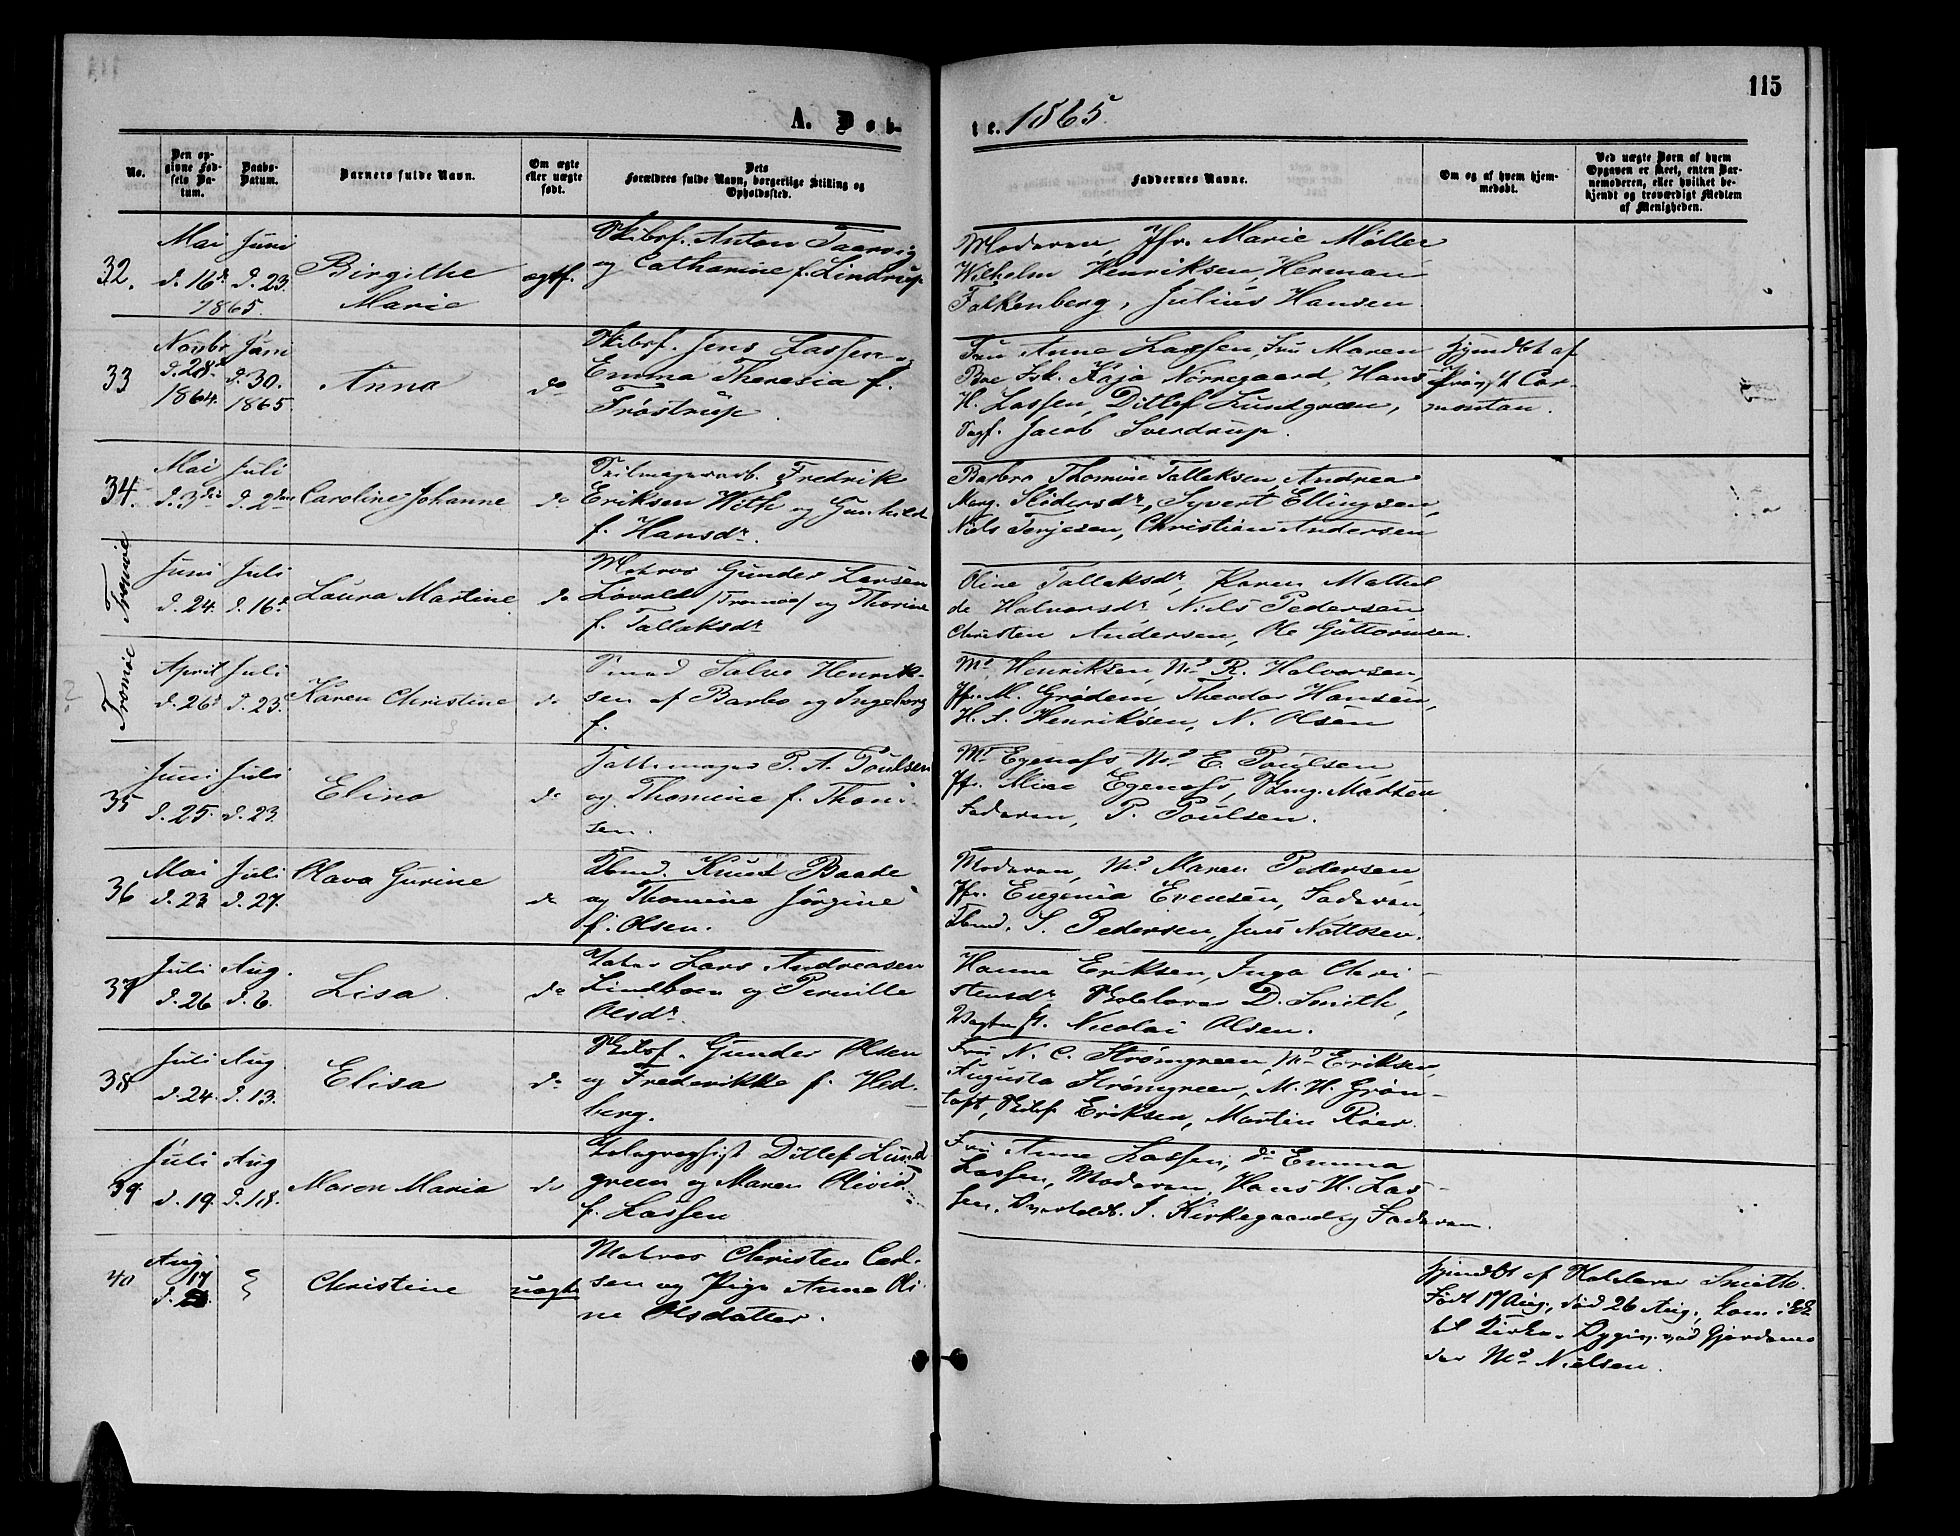 115
A. Døb-
te. 1865.
No.
Den op-
givne Fød-
sels Da-
tum.
Daabs-
Datum.
Barnets fulde Navn.
Om ægte
eller uægte
født.
Dets
Forældres fulde Navn, borgerlige Stilling og
Opholdssted.
Faddernes Navne.
Om og af hvem hjem-
medøbt.
Ved uægte Børn af hvem
Opgaven er skeet, enten Bar-
nemoderen, eller hvilket be-
kjendt og troværdigt Medlem
af Menigheden.
32.
Mai
d. 16de
1865.
Juni
d. 23.
Birgithe
Marie
ægtf.
Skibsf. Anton Taarvig
og Cathamine f. Lindrup
Moderen, Jfr. Marie Møller
Wilhelm Henriksen, Herman
Falkenberg, Julius Hansen.
33
Novbr
d. 28
1864.
Juni
d. 30.
1865
Anna
do
Skibsf. Jens Lassen og
Emma Theresia f.
Frøstrup.
Fru Anne Lassen, Fru Maren
Boe Frk. Kaja Nørregaard, Hans
H. Lassen, Ditlef Lundgreen,
Jacob Sverdrup.
hjemdbt af
Provst Cor-
montan.
34.
Mai
d. 3die
Juli
d. 2den
Caroline Johanne
do
Seilmagersvd. Fredrik
Eriksen With og Gunhild
f. Hansdr.
Barbro Thomine Tallaksen, Andrea
Marg. Slidersdr, Syvert Ellingsen,
Niels Terjesen, Christian Andersen
Tromøe
Juni
d. 24.
Juli
d. 16d
Laura Martine
do
Matros Gunder Larsen
Løvold (Tromøe) og Thorine
f. Tallaksdr
Oline Tallaksdr, Karen Mathil
de Halvorsdr Niels Pedersen
Christen Andersen, Ole Guttormsen.
Tromøe
April
d. 26d
Juli
d. 23.
Karen Christine
do
Salve Henrik-
sen af Barbo og Ingeborg
f.
Md Henriksen, Md R. Halvorsen,
Jfr. M. Grødem Theodor Hansen,
H. A. Henriksen, N. Olsen
35
Juni
d. 25.
Juli
d. 23.
Elina
do
P. A. Poulsen
og Thomine f. Thom-
sen.
Md Egenæss, Md E. Poulsen
Jfr. Alice Egenæss, Madsen
Faderen, P. Poulsen.
36
Mai
d. 23
Juli
d. 27.
Olava Gurine
do
Tbmd. Knud Baade
og Thomine Jørgine
f. Olsen.
Moderen, Md. Maren Pedersen
Jfr. Eugenia Evensen, Faderen,
Tbmd. S. Pedersen, Jens Nottosen.
37
Juli
d. 26
Aug.
d. 6.
Lisa.
do
Lars Andreasen
Lindboen og Pernille
Olsdr.
Hanna Eriksen, Inga Chri-
stensdr, Holelærer D. Smith,
Nicolai Olsen.
38
Juli
d. 24.
Aug
d. 13.
Elisa
do
Skibsf. Gunder Olsen
og Frederikke f. Hed-
berg.
Fru N. C. Strømgreen, Md Eriksen,
Augusta Strømgreen, M. H. Grøn-
toft, Skibsf. Eriksen, Martin Røer.
39
Juli
d. 19.
Aug
d. 18.
Maren Maria
do
Telegraphist Ditlef Lund
green og Maren Olivia
f. Lassen
Fru Anne Lassen, do Emma
Lassen, Moderen, Hans H. Las-
sen, J. Kirkegaard og Faderen.
40
Aug
17
d.
Christine
uægte
Matros Christen Carl-
sen og Pige Anne Oli-
ne Olsdatter.
hjemdbt af Smith.
Født 17 Aug., død 26 Aug.,
Kirke. ved Gjordemo
der Md Nielsen.